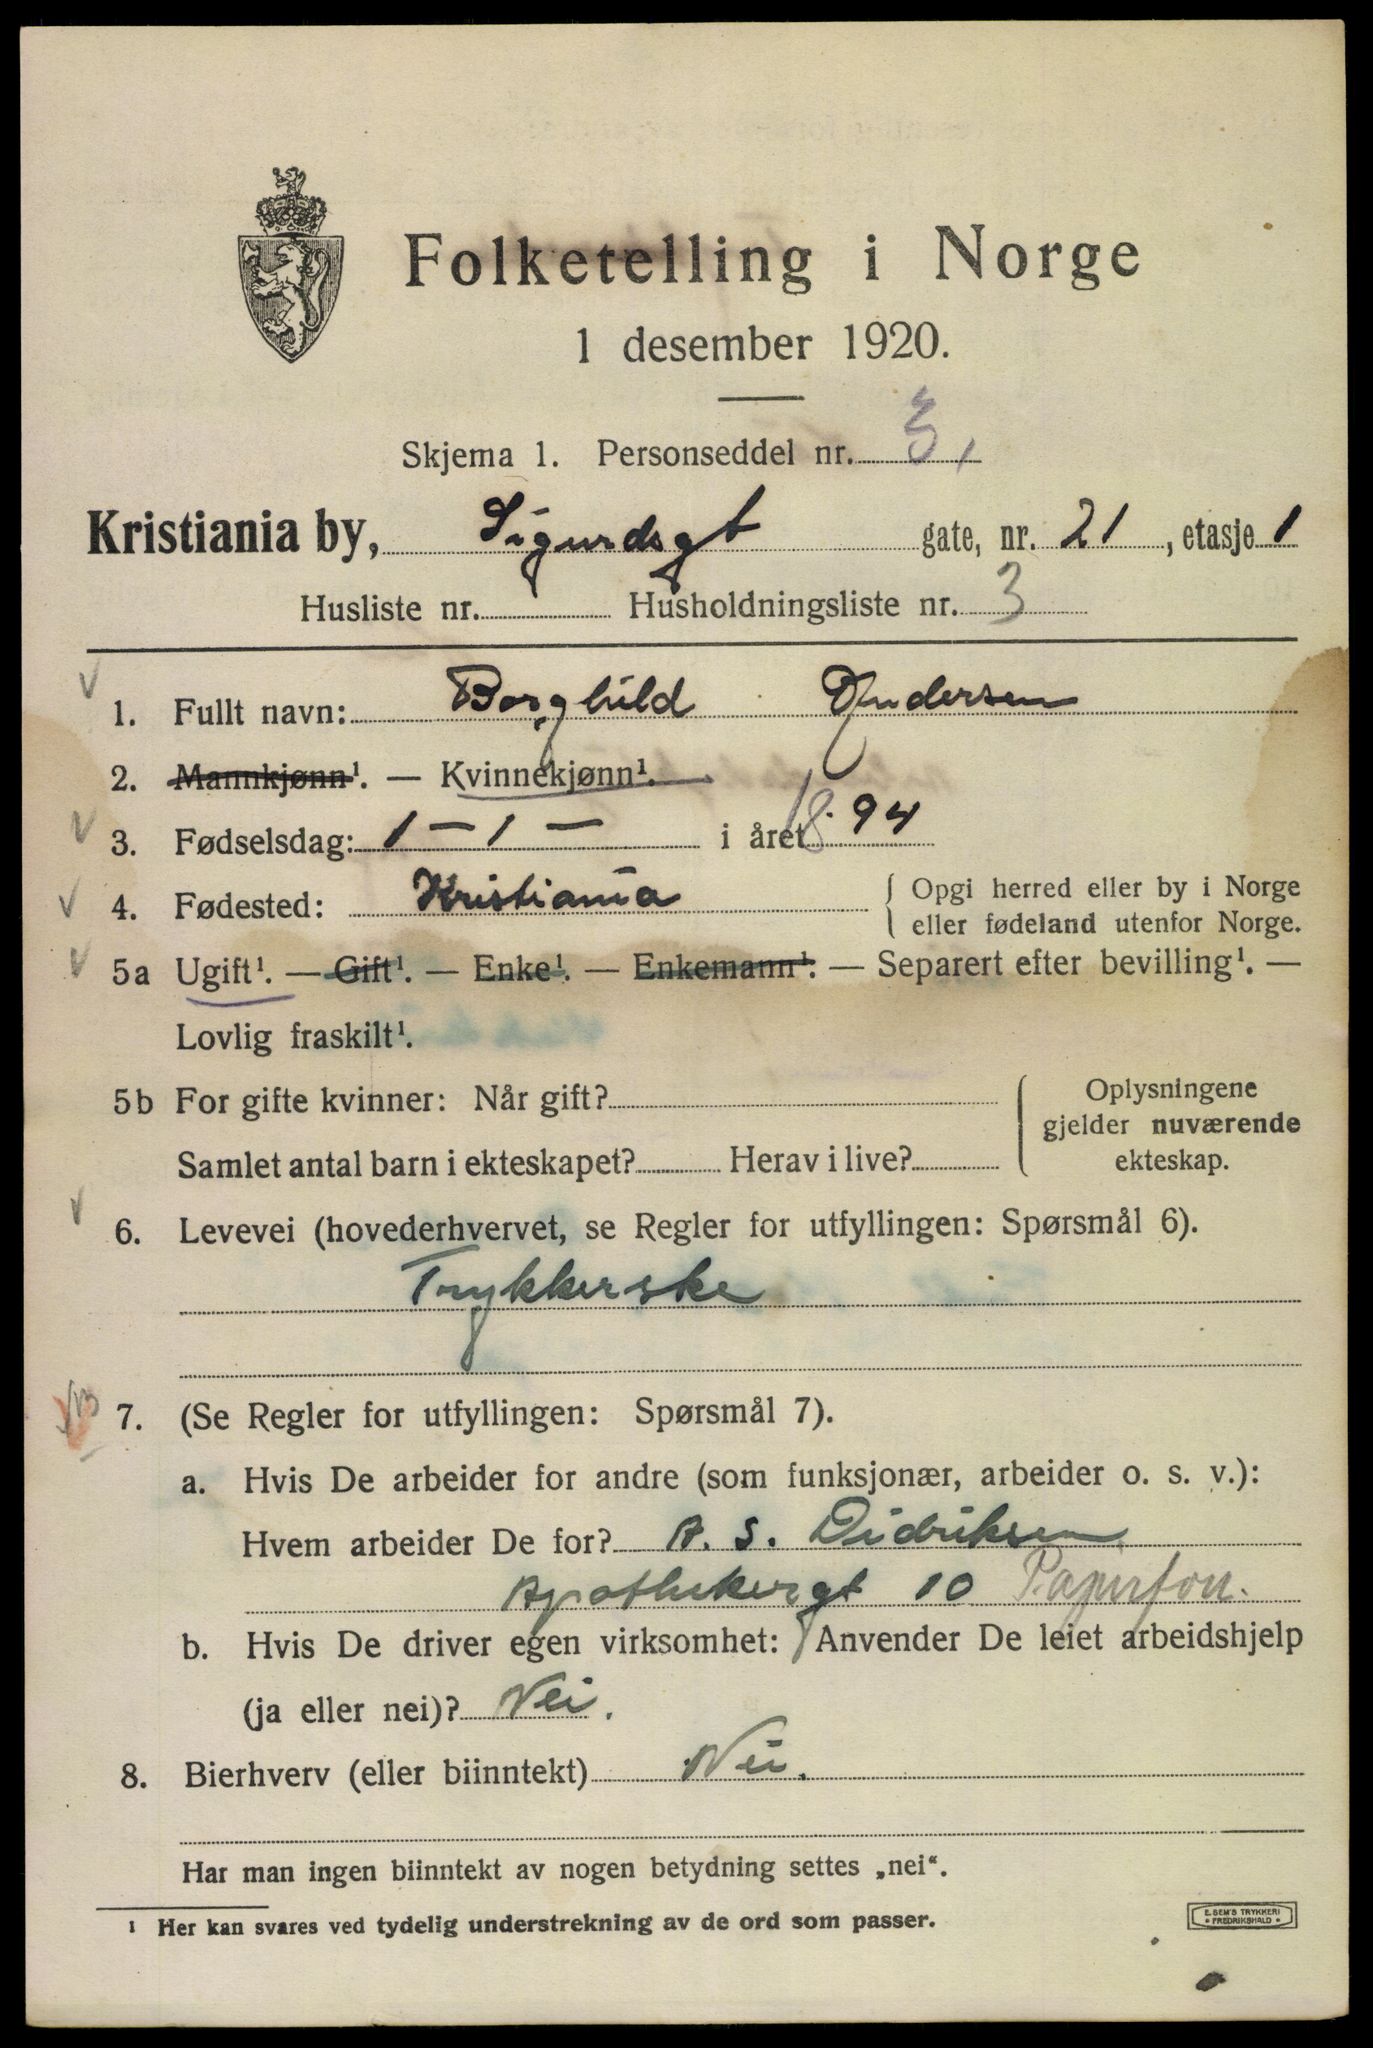 Folketelling i Norge
1 desember 1920.
Skjema 1. Personseddel nr. 3,
Kristiania by, Sigurdsgt gate, nr. 21, etasje 1
Husliste nr. Husholdningsliste nr. 3
1. Fullt navn: Borghild Andersen
2. Mannkjønn¹. — Kvinnekjønn¹.
3. Fødselsdag: 1 – 1 – i året 1894
4. Fødested: Kristiania
{ Opgi herred eller by i Norge
eller fødeland utenfor Norge.
5a Ugift¹. — Gift¹. — Enke¹. — Enkemann¹. — Separert efter bevilling¹. —
Lovlig fraskilt¹.
5b For gifte kvinner: Når gift?
Samlet antal barn i ekteskapet? Herav i live?
{ Oplysningene
gjelder nuværende
ekteskap.
6. Levevei (hovederhvervet, se Regler for utfyllingen: Spørsmål 6).
Trykkerske
7. (Se Regler for utfyllingen: Spørsmål 7).
a. Hvis De arbeider for andre (som funksjonær, arbeider o. s. v.):
Hvem arbeider De for? A. S. Didriksen
Apothekergt 10 Papirforr.
b. Hvis De driver egen virksomhet: Anvender De leiet arbeidshjelp
(ja eller nei)? Nei.
8. Bierhverv (eller biinntekt) Nei.
Har man ingen biinntekt av nogen betydning settes „nei“.
¹ Her kan svares ved tydelig understrekning av de ord som passer.
E. SEM'S TRYKKERI
• FREDRIKSHALD •